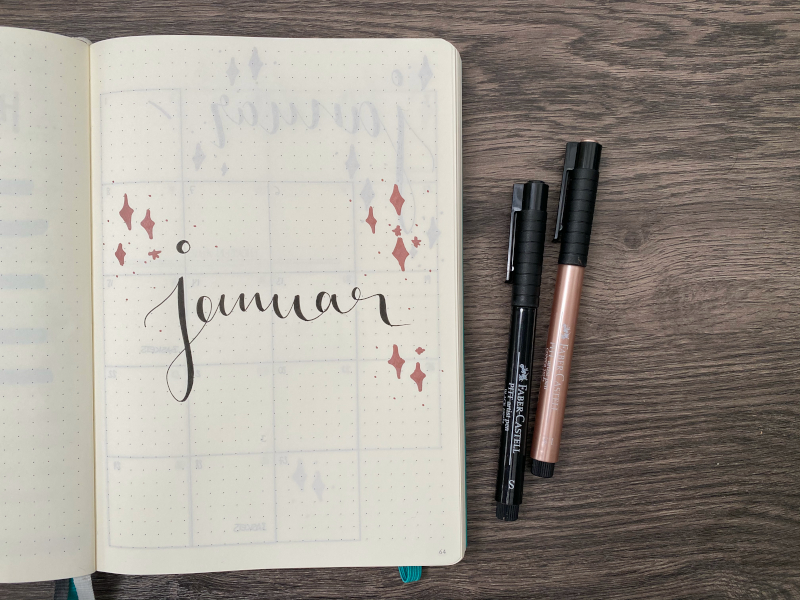 januar
64
FABER-CASTELL
PITT artist pen
S
FABER-CASTELL